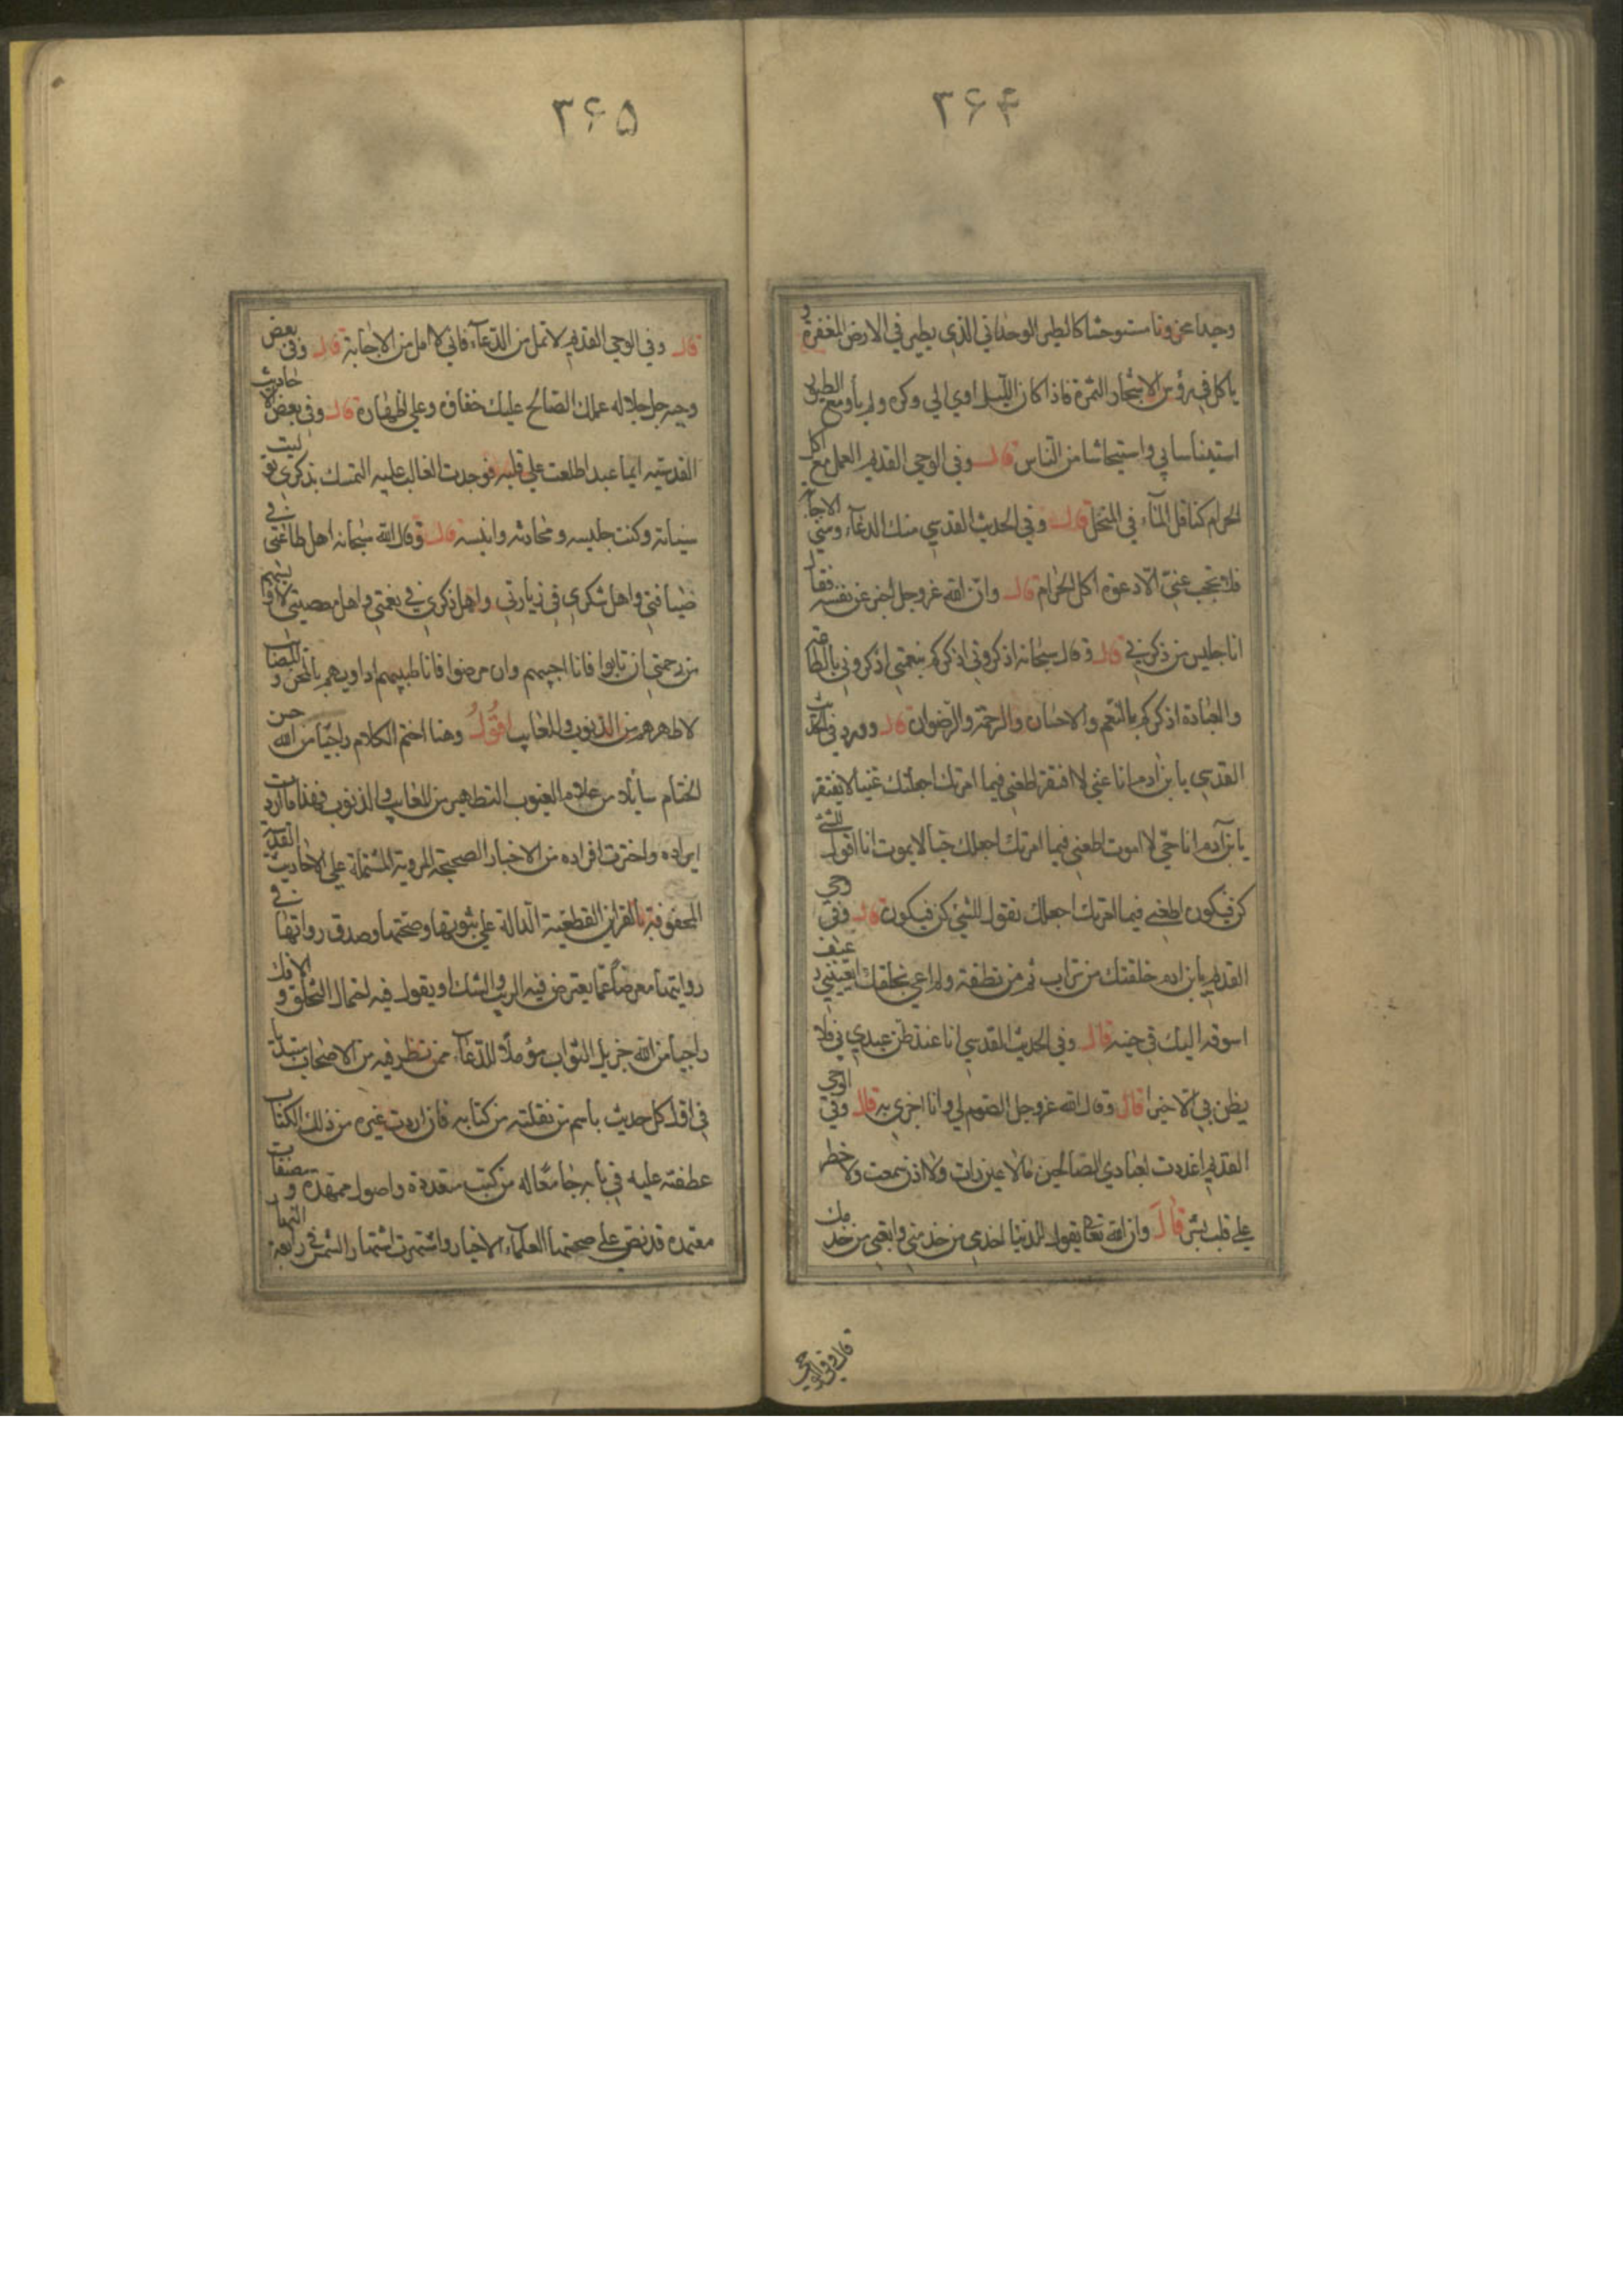 ۳۶۴
وحیدا محزونا مستوحشا کالطیر الوحدانی الذی یطیر فی الارض المقفرة و
یاکل من رؤس الاشجار المثمرة فاذا کان اللیل اوی الی وکره ولم یأو مع الطیور
استیناسا بی واستیحاشا من الناس قال وفی الوحی القدیم العمل مع اکل
الحرام کناقل الماء فی المنخل قال وفی الحدیث القدسی منک الدعاء ومنی الاجابة
فلا تحجب عنی الا دعوة اکل الحرام قال وان الله عز وجل اخبر عن نفسه فقال
انا جلیس من ذکرنی قال وقال سبحانه اذکرونی اذکرکم بنعمتی اذکرونی بالطاعة
والعبادة اذکرکم بالنعم والاحسان والرحمة والرضوان قال وورد فی الحدیث
القدسی یا بن ادم انا غنی لا افتقر اطعنی فیما امرتک اجعلک غنیا لا تفتقر
یا بن آدم انا حی لا اموت اطعنی فیما امرتک اجعلک حیا لا یموت انا اقول للشئ
کن فیکون اطعنی فیما امرتک اجعلک تقول للشئ کن فیکون قال وفی الوحی
القدیم یا بن ادم خلقتک من تراب ثم من نطفة ولم اعی بخلقک ایعیینی رغیف
اسوقه الیک فی حینه قال وفی الحدیث القدسی انا عند ظن عبدی بی فلا
یظن بی الا خیرا قال وقال الله عز وجل الصوم لی وانا اجزی به قال وفی الوحی
القدیم اعددت لعبادی الصالحین ما لا عین رات ولا اذن سمعت ولا خطر
علی قلب بشر قال وان الله تعا یقول للدنیا اخدمی من خدمنی واتعبی من خدمک
قال وفی الوحی
۳۶۵
قال وفی الوحی القدیم لا تمل من الدعاء فانی لا امل من الاجابة قال وفی بعض
وحیه جل جلاله عملک الصالح علیک خفاؤه وعلی اظهاره قال وفی بعض الاحادیث
القدسیه ایما عبد اطلعت علی قلبه فوجدت الغالب علیه التمسک بذکری تولیت
سیاسته وکنت جلیسه ومحادثه وانیسه قال وقال الله سبحانه اهل طاعتی فی
ضیافتی واهل شکری فی زیارتی واهل ذکری فی نعمتی واهل معصیتی لا اویسهم
من رحمتی ان تابوا فانا احبهم وان مرضوا فانا طبیبهم اداویهم بالمحن والمصائب
لاطهرهم من الذنوب والمعایب اقول وهنا اختم الکلام راجیا من الله حسن
الختام سائلا من علام الغیوب التطهیر من المعایب والذنوب فهذا ما اردت
ایراده واخترت افراده من الاخبار الصحیحة المرویة المشتملة علی الاحادیث القدسیة
المحفوفة بالقراین القطعیة الدالة علی ثبوتها وصحتها وصدق رواتها فی
روایتها معرضا عما یعترض فیه الریب والشک او یقول فیه احتمال التخلق والافک
راجیا من الله جزیل الثواب مؤملا للدعاء ممن نظر فیه من الاصحاب مبتدئا
فی اول کل حدیث باسم من نقلته من کتابه فان اردت غیره من ذلک الکتاب
عطفته علیه فی بابه جامعا له من کتب متعددة واصول ممهدة ومصنفات
معتمدة قد نص علی صحتها العلماء الاخیار واشتهرت اشتهار الشمس فی رابعة النهار